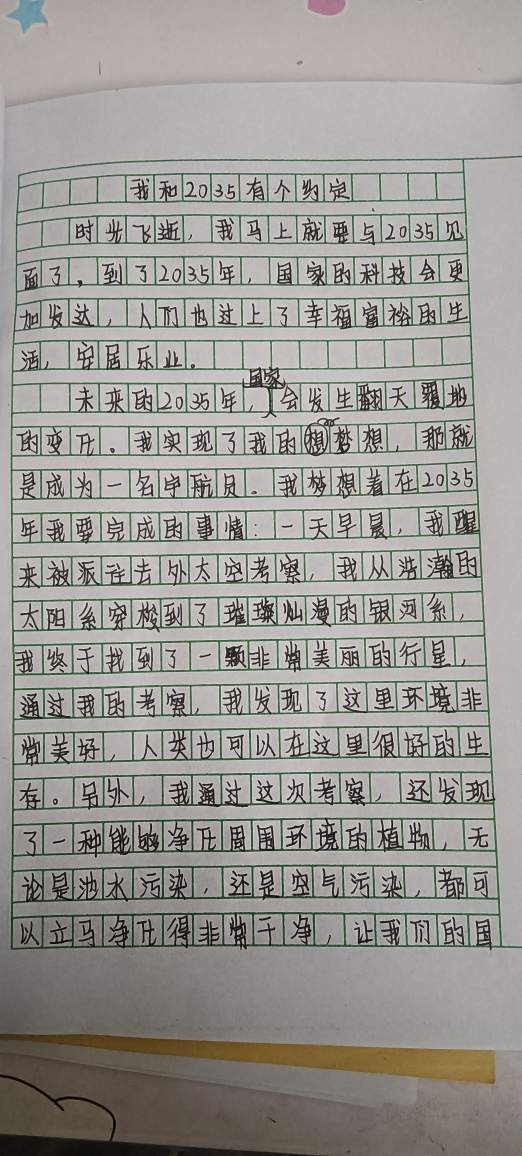 我和2035有个约定
时光飞逝，我马上就要与2035见
面了，到了2035年，国家的科技会更
加发达，人们也过上了幸福富裕的生
活，安居乐业。
未来的2035年，国家会发生翻天覆地
的变化。我实现了我的梦想，那就
是成为一名宇航员。我梦想着在2035
年我要完成的事情：一天早晨，我醒
来被派往去外太空考察，我从浩瀚的
太阳系穿梭到了璀璨灿漫的银河系，
我终于找到了一颗非常美丽的行星，
通过我的考察，我发现了这里环境非
常美好，人类也可以在这里很好的生
存。另外，我通过这次考察，还发现
了一种能够净化周围环境的植物，无
论是池水污染，还是空气污染，都可
以立马净化得非常干净，让我们的国